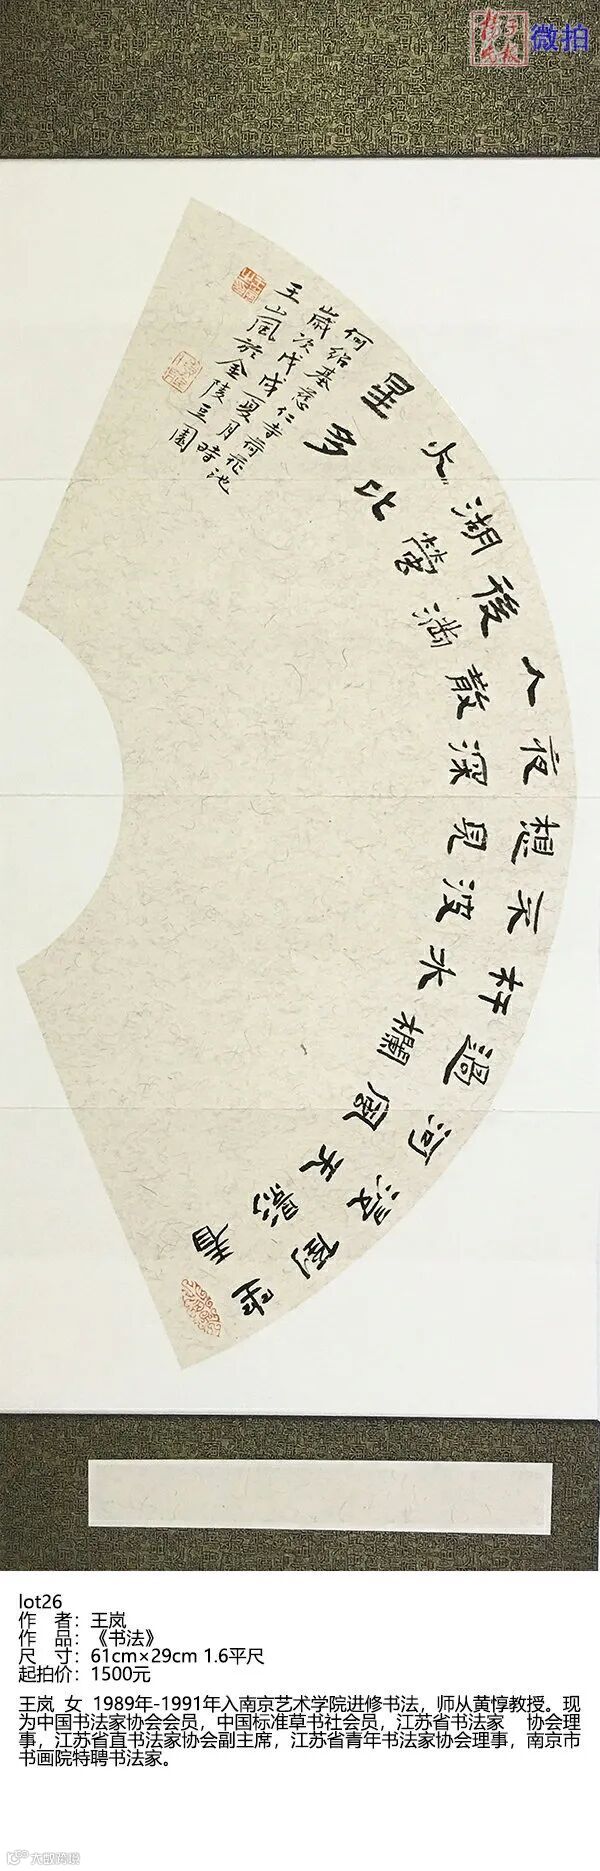 扬子晚报
微拍
坐看
倒影
浸天
河風
過欄
杆水
不波
想見
夜深
人散
後滿
湖螢
火比
星多
何紹基慈仁寺荷花池
歲次戊戌夏月時
王嵐於金陵豆園
lot26
作 者：王岚
作 品：《书法》
尺 寸：61cm×29cm 1.6平尺
起拍价：1500元
王岚 女 1989年-1991年入南京艺术学院进修书法，师从黄惇教授。现
为中国书法家协会会员，中国标准草书社会员，江苏省书法家 协会理
事，江苏省直书法家协会副主席，江苏省青年书法家协会理事，南京市
书画院特聘书法家。
大数跨境